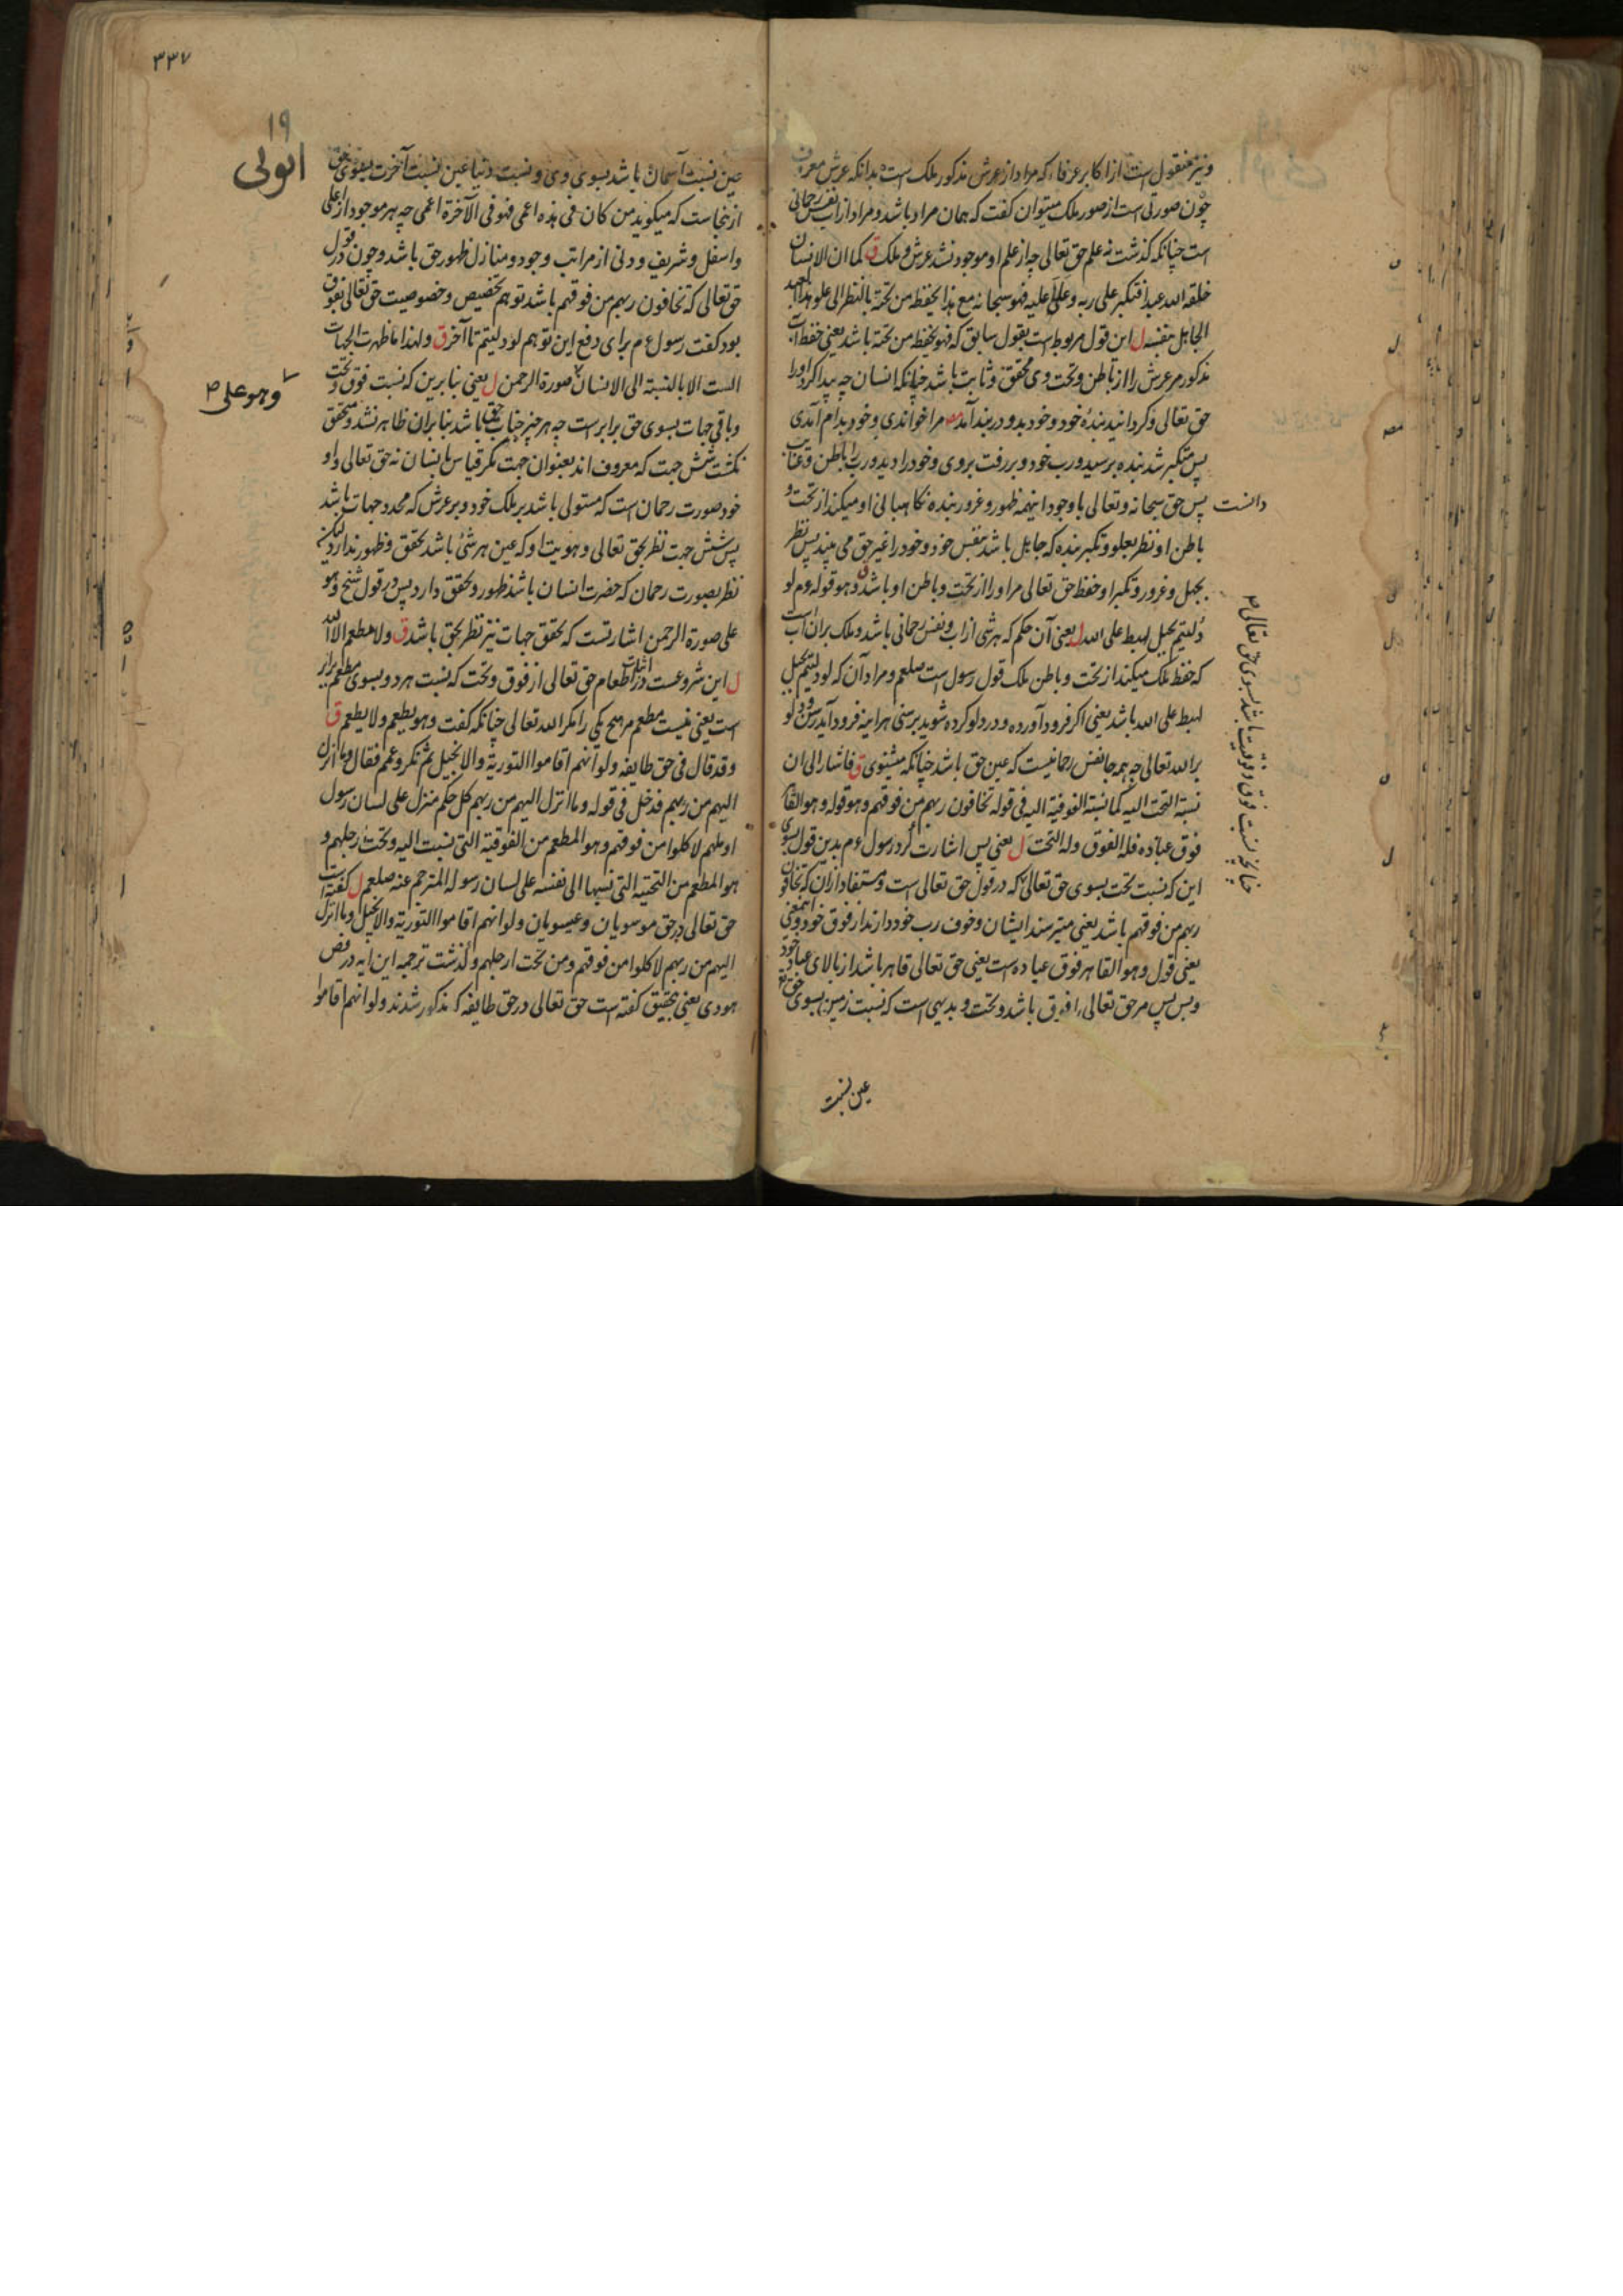 ونیز منقول است از اکابر عرفا که مراد از عرش مذکور ملک است بدانکه عرش معروف
چون صورتی است از صور ملک میتوان کفت که همان مراد باشد و مراد از آب نفس رحمانی
است چنانکه کذشت نه علم حق تعالی چه از علم او موجود نشد عرش و ملک ق کما ان الانسان
خلقه الله عبدا فتکبر علی ربه وعلا علیه فهو سبحانه مع هذا یحفظه من تحته بالنظر الی علو هذا العبد
الجاهل بنفسه ل این قول مربوط است بقول سابق که فهو یحفظه من تحته باشد یعنی حفظ آب
مذکور مر عرش را از باطن و تحت وی محقق و ثابت باشد چنانکه انسان چه پیدا کرد او را
حق تعالی و کردانید بندۀ خود و خود بدو در بند آمد مصر مرا خواندی و خود بدام آمدی
پس متکبر شد بنده برسید و رب خود و بر رفت بروی و خود را دید و رب را باطن و غایب
دانست پس حق سبحانه و تعالی با وجود اینهمه ظهور و غرور بنده نکاهبانی او میکند از تحت و
باطن او نظر بعلو و تکبر بنده که جاهل باشد بنفس خود و خود را غیر حق می بیند پس نظر
بجهل و غرور و تکبر او حفظ حق تعالی مر او را از تحت و باطن او باشد ق وهو قوله ءم لو
دلیتم بحبل لهبط علی الله ل یعنی آن حکم که هر شی از آب و نفس رحمانی باشد و ملک بر آن آب است
که حفظ ملک میکند از تحت و باطن ملک قول رسول است صلعم و مراد آن که لو دلیتم بحبل
لهبط علی الله باشد یعنی اکر فرود آورده و در دلو کرده شوید برسنی هر اینه فرود آید رسن و دلو
بر الله تعالی چه همه جا نفس رحمانیست که عین حق باشد چنانکه میشنوی ق فاشار الی ان
نسبة التحت الیه کما نسبة الفوقیة الیه فی قوله یخافون ربهم من فوقهم وهو قوله وهو القاهر
فوق عباده فله الفوق وله التحت ل یعنی پس اشارت کرد رسول ءم بدین قول بسوی
این که نسبت تحت بسوی حق تعالی که در قول حق تعالی است و مستفاد از آن که یخافون
ربهم من فوقهم باشد یعنی میترسند ایشان و خوف رب خود دارند از فوق خود و اینمعنی
یعنی قول وهو القاهر فوق عباده است یعنی حق تعالی قاهر باشد از بالای عباد خود
و بس پس مر حق تعالی را فوق باشد و تحت و بدیهی است که نسبت زمین بسوی حق تع
چنانچه نسبت فوق و فوقیت باشد بسوی حق تعالی
عین نسبت
۳۳۷
۱۹
عین نسبت آسمان باشد بسوی وی و نسبت دنیا عین نسبت آخرت بسوی حق
ازینجاست که میکوید من کان فی هذه اعمی فهو فی الآخرة اعمی چه هر موجود از اعلی
و اسفل و شریف و دنی از مراتب وجود و منازل ظهور حق باشد و چون در قول
حق تعالی که یخافون ربهم من فوقهم باشد توهم تخصیص و خصوصیت حق تعالی بفوق
بود کفت رسول ءم برای دفع این توهم لو دلیتم تا آخر ق ولهذا ما ظهرت الجهات
الست الا بالنسبة الی الانسان صورة الرحمن ل یعنی بنابرین که نسبت فوق و تحت
وهو علی
و باقی جهات بسوی حق برابر است چه هر چیز حق باشد بنابران ظاهر نشد و محقق
نکشت شش جهت که معروف اند بعنوان جهت مکر قیاس بانسان نه حق تعالی و او
خود صورت رحمان است که مستولی باشد بر ملک خود و بر عرش که محدد جهات باشد
پس شش جهت نظر بحق تعالی و هویت او که عین هر شئ باشد تحقق و ظهور ندارد لیکن
نظر بصورت رحمان که حضرت انسان باشد ظهور و تحقق دارد پس در قول شیخ وهو
علی صورة الرحمن اشارتست که تحقق جهات نیز نظر بحق باشد ق ولا مطعم الا الله
ل این شروعست در اثبات اطعام حق تعالی از فوق و تحت که نسبت هر دو بسوی مطعم برابر
است یعنی نیست مطعم مر هیچ یکی را مکر الله تعالی چنانکه کفت وهو یطعم ولا یطعم ق
وقد قال فی حق طایفه ولو انهم اقاموا التوریة والانجیل ثم نکر وعمم فقال وما انزل
الیهم من ربهم فدخل فی قوله وما انزل الیهم من ربهم کل حکم منزل علی لسان رسول
او ملهم لاکلوا من فوقهم وهو المطعم من الفوقیة التی نسبت الیه وتحت ارجلهم و
هو المطعم من التحتیة التی نسبها الی نفسه علی لسان رسوله المترجم عنه صلعم ل کفته است
حق تعالی در حق موسویان و عیسویان ولو انهم اقاموا التوریة والانجیل وما انزل
الیهم من ربهم لاکلوا من فوقهم ومن تحت ارجلهم و کذشت ترجمه این ایه در فص
هودی یعنی بتحقیق کفته است حق تعالی در حق طایفه که مذکور شدند ولو انهم اقاموا